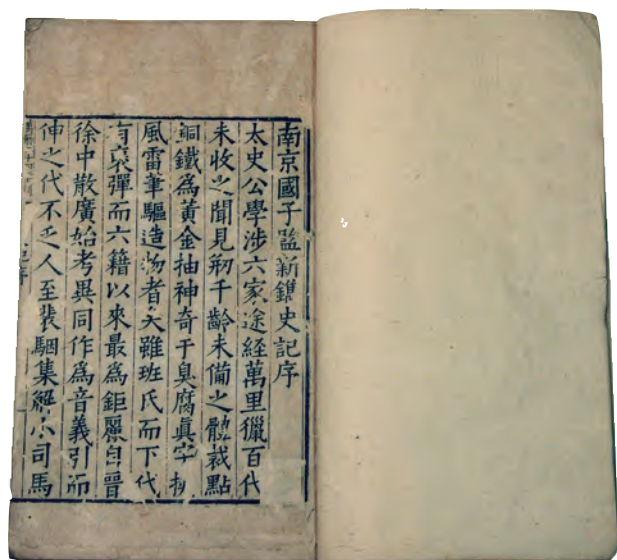 南京國子監新鐫史記序
太史公學涉六家途經萬里獵百代
未收之聞見剏千齡未備之體裁點
銅鐵爲黃金抽神奇于臭腐眞宇
風雷筆驅造物者矣雖班氏而下代
有裒彈而六籍以來最爲鉅麗自晉
徐中散廣始考異同作爲音義引而
伸之代不乏人至裴駰集解小司馬